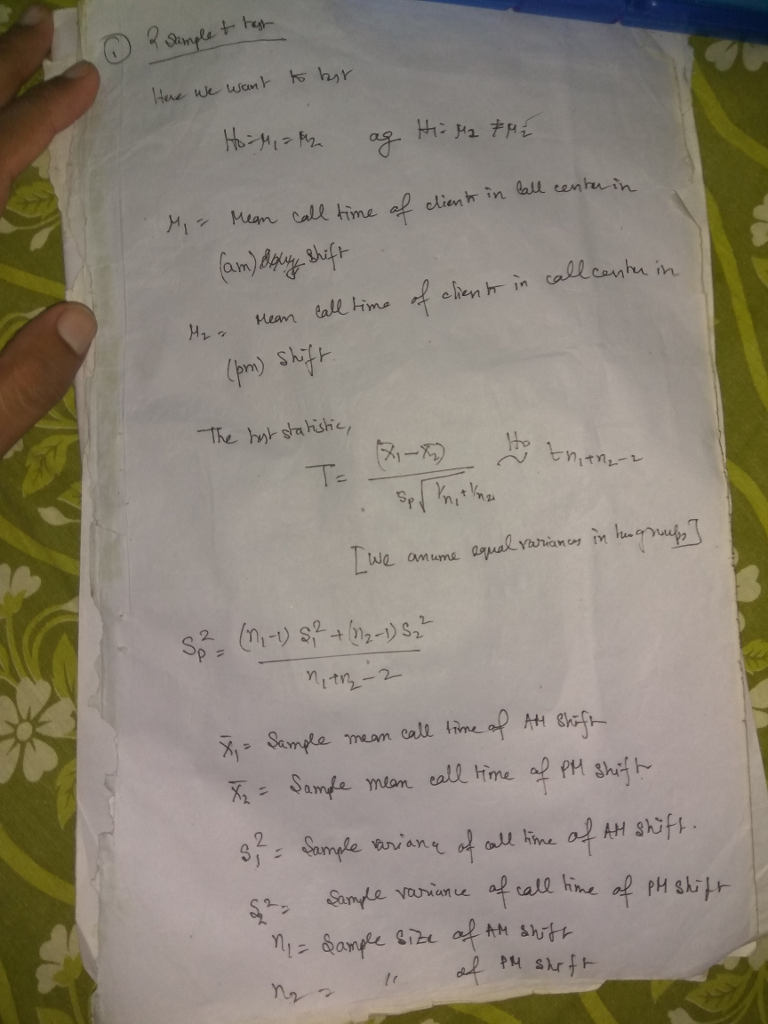 ① 2 Sample t test
Here we want to test
H0 = μ1 = μ2 ag H1: μ2 ≠ μ1
μ1 = Mean call time of clients in Call center in
(am) shift
μ2 = Mean call time of clients in call center in
(pm) shift.
The test statistic,
T = (X̄1 - X̄2) / Sp√(1/n1 + 1/n2) ~ H0 t n1+n2-2
[We assume equal variances in two groups]
Sp² = (n1-1) S1² + (n2-1) S2² / n1+n2-2
X̄1 = Sample mean call time of AM Shift
X̄2 = Sample mean call time of PM shift
S1² = Sample variance of call time of AM shift.
S2² = Sample variance of call time of PM shift
n1 = Sample size of AM shift
n2 = " of PM shift